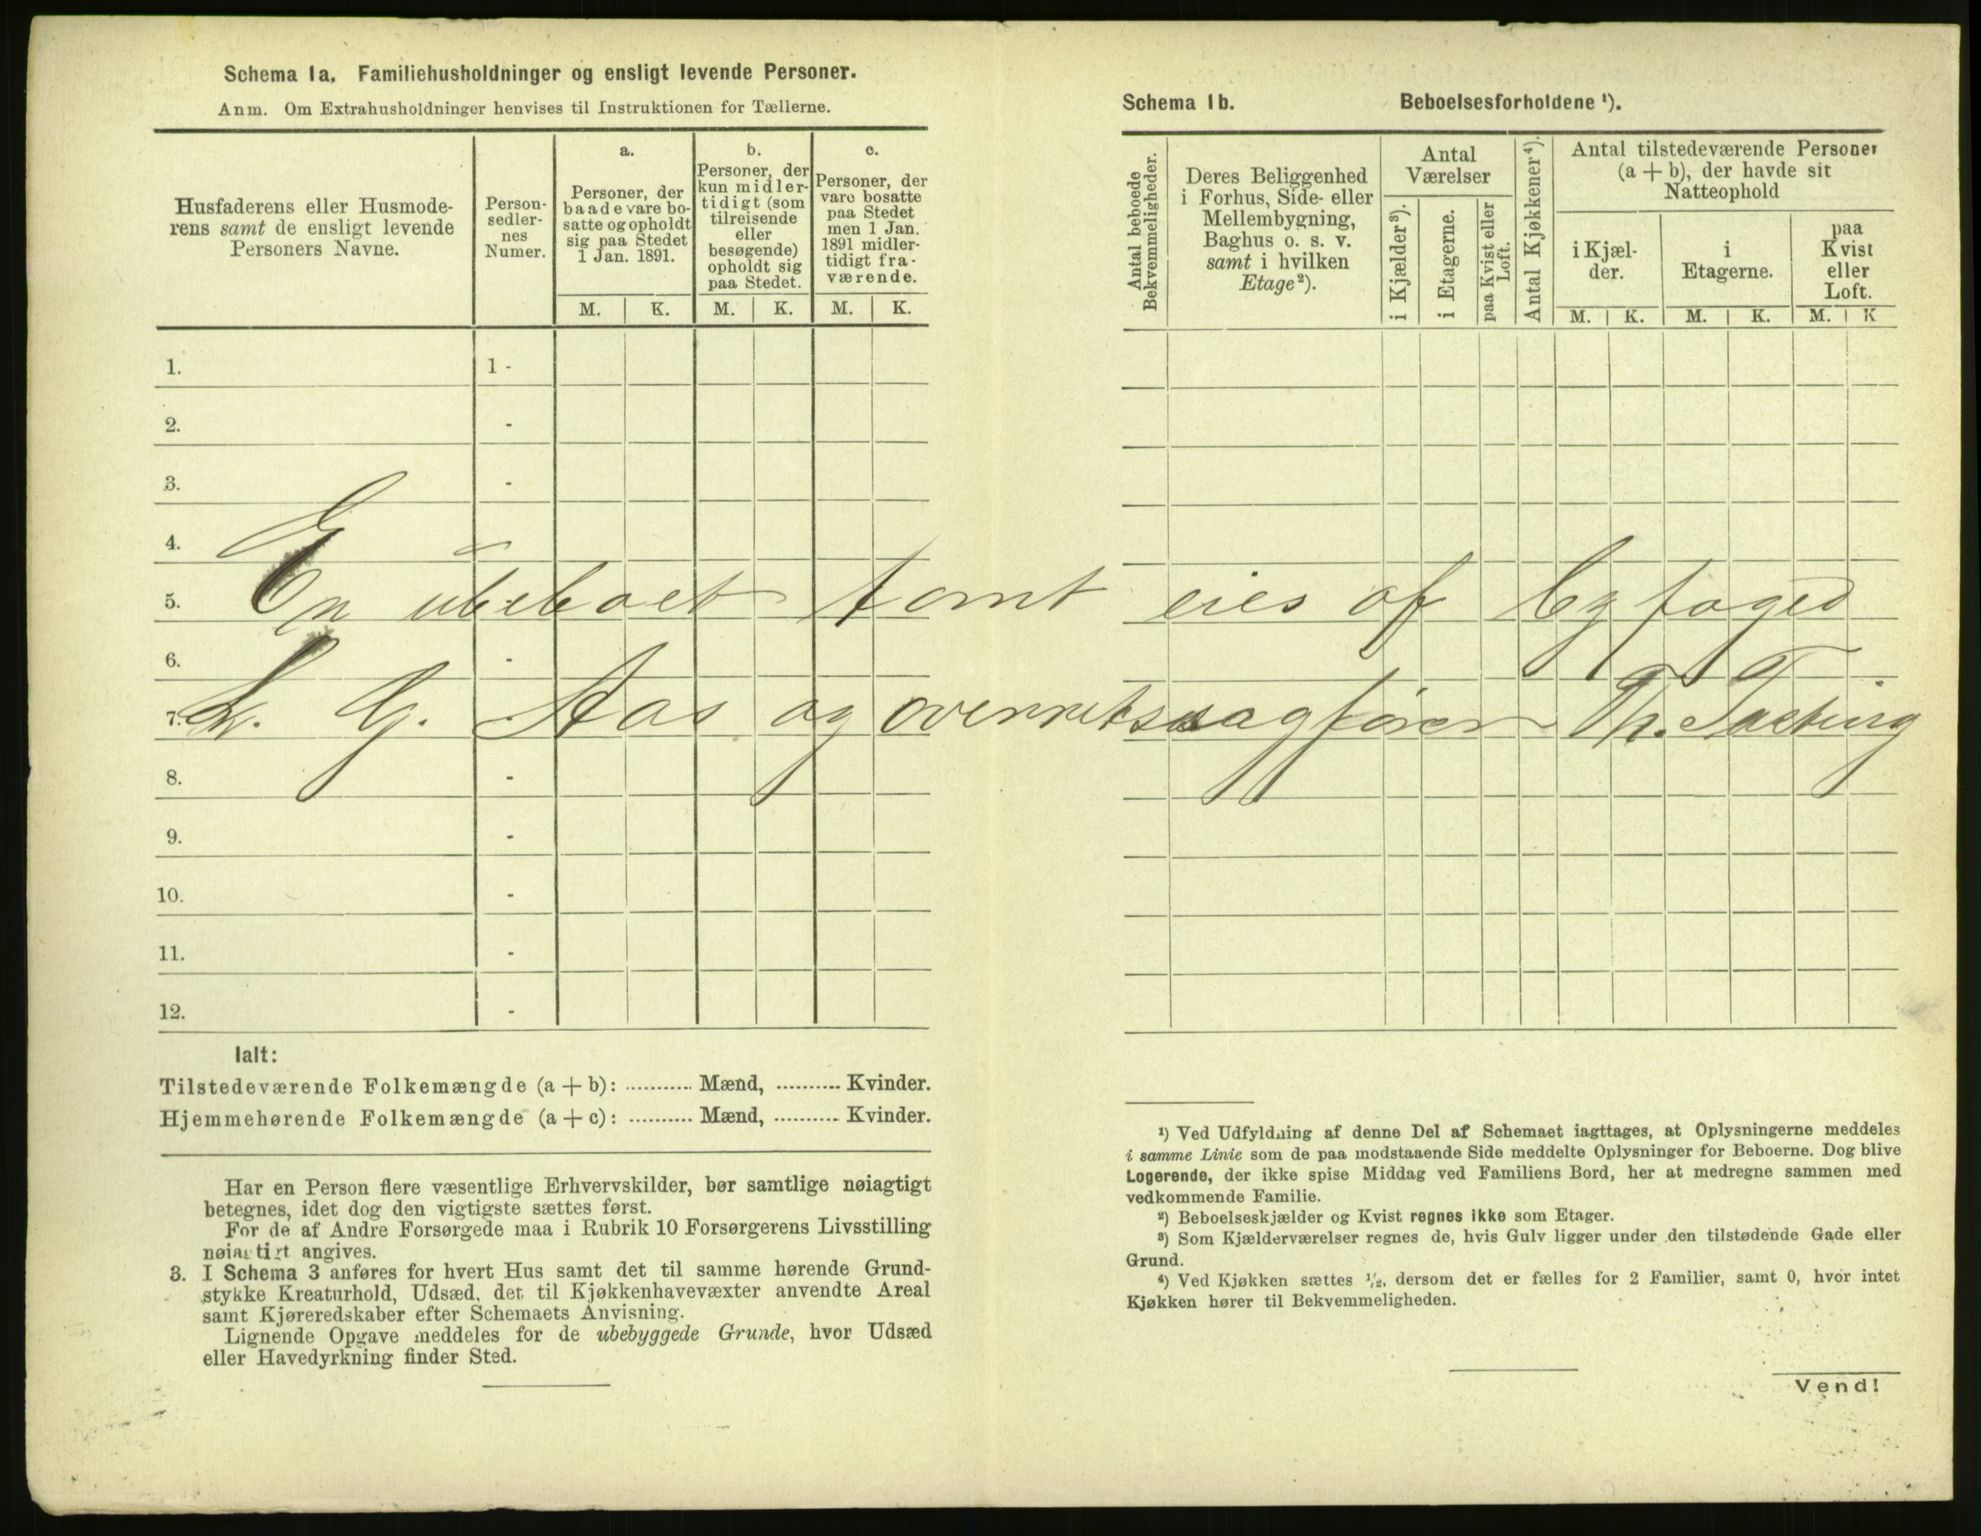 Schema 1a. Familiehusholdninger og ensligt levende Personer.
Anm. Om Extrahusholdninger henvises til Instruktionen for Tællerne.
Husfaderens eller Husmode-
rens samt de ensligt levende
Personers Navne.
Person-
sedler-
nes
Numer.
a.
Personer, der
baade vare bo-
satte og opholdt
sig paa Stedet
1 Jan. 1891.
b.
Personer, der
kun midler-
tidigt (som
tilreisende
eller
besøgende)
opholdt sig
paa Stedet.
c.
Personer, der
vare bosatte
paa Stedet
men 1 Jan.
1891 midler-
tidigt fra-
værende.
M. K. M. K. M. K.
1. 1 -
2. -
3. -
4.
5.
6. -
7.
8. -
9. -
10. -
11. -
12. -
En ubeboet tomt eies af Byfoged
L. G. Aas og overretssagfører Th.
Ialt:
Tilstedeværende Folkemængde (a + b): .......... Mænd, .......... Kvinder.
Hjemmehørende Folkemængde (a + c): .......... Mænd, .......... Kvinder.
Har en Person flere væsentlige Erhvervskilder, bør samtlige nøiagtigt
betegnes, idet dog den vigtigste sættes først.
For de af Andre Forsørgede maa i Rubrik 10 Forsørgerens Livsstilling
nøiagtigt angives.
3. I Schema 3 anføres for hvert Hus samt det til samme hørende Grund-
stykke Kreaturhold, Udsæd, det til Kjøkkenhavevæxter anvendte Areal
samt Kjøreredskaber efter Schemaets Anvisning.
Lignende Opgave meddeles for de ubebyggede Grunde, hvor Udsæd
eller Havedyrkning finder Sted.
Schema 1b. Beboelsesforholdene ¹).
Antal beboede
Bekvemmeligheder.
Deres Beliggenhed
i Forhus, Side- eller
Mellembygning,
Baghus o. s. v.
samt i hvilken
Etage ²).
Antal
Værelser
i Kjælder ³).
i Etagerne.
paa Kvist eller
Loft.
Antal Kjøkkener ⁴).
Antal tilstedeværende Personer
(a + b), der havde sit
Natteophold
i Kjæl-
der.
i
Etagerne.
paa
Kvist
eller
Loft.
M. K. M. K. M. K
¹) Ved Udfyldning af denne Del af Schemaet iagttages, at Oplysningerne meddeles
i samme Linie som de paa modstaaende Side meddelte Oplysninger for Beboerne. Dog blive
Logerende, der ikke spise Middag ved Familiens Bord, her at medregne sammen med
vedkommende Familie.
²) Beboelseskjælder og Kvist regnes ikke som Etager.
³) Som Kjælderværelser regnes de, hvis Gulv ligger under den tilstødende Gade eller
Grund.
⁴) Ved Kjøkken sættes ½, dersom det er fælles for 2 Familier, samt 0, hvor intet
Kjøkken hører til Bekvemmeligheden.
Vend!